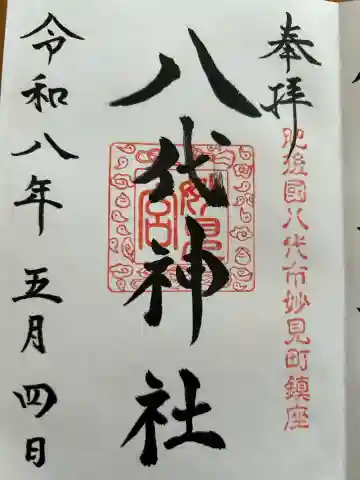 奉拝
肥後国八代市妙見町鎮座
八代神社
妙見宮
令和八年五月四日